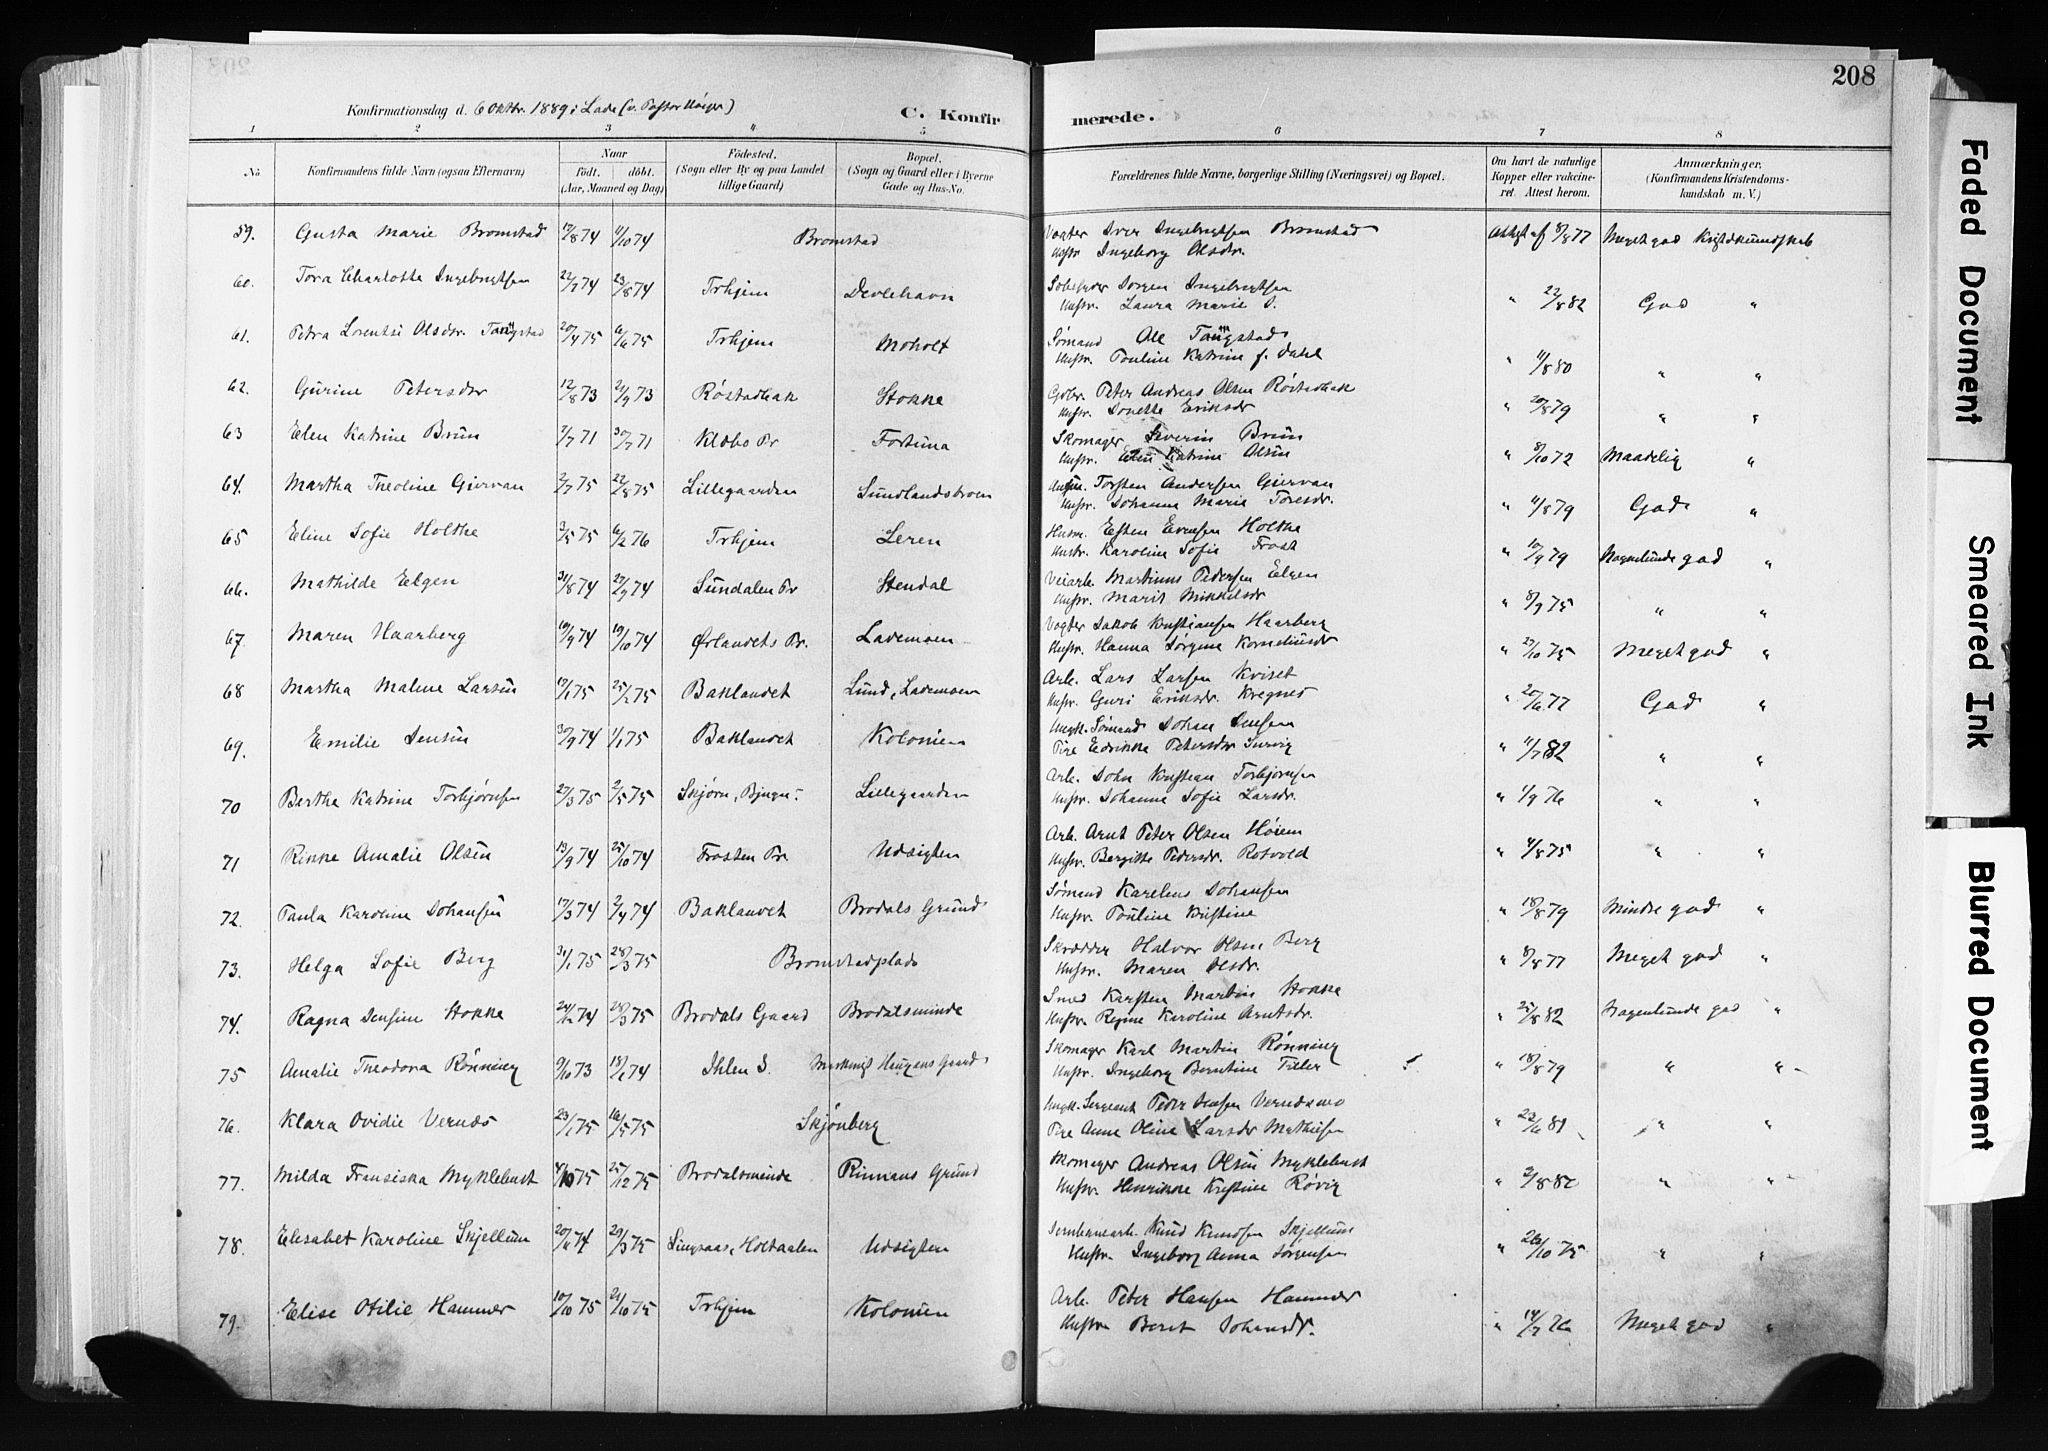 208
Konfirmationsdag d. 6 Oktbr. 1889 i Lade (v. Pastor
C. Konfirmerede.
1 2 3 4 5 6 7 8
No Konfirmandens fulde Navn (ogsaa Efternavn) Naar født. døbt. (Aar, Maaned og Dag) Fødested. (Sogn eller By og paa Landet tillige Gaard) Bopæl. (Sogn og Gaard eller i Byerne Gade og Hus-No. Forældrenes fulde Navne, borgerlige Stilling (Næringsvei) og Bopæl. Om havt de naturlige Kopper eller vakcineret. Attest herom. Anmærkninger. (Konfirmandens Kristendomskundskab m. V.)
59. Gusta Marie Bromstad 12/8 74 11/10 74 Bromstad Vogter Iver Ingebrigtsen Bromstad Attest af 8/8 77 Meget god Kristdkundskab
Hustr Ingeborg Olsdtr.
60. Tora Charlotte Ingebrigtsen 22/7 74 23/8 74 Trhjem Devlehavn Jørgen Ingebrigtsen
Hustr. Laura Marie J. " 22/8 82 God "
61. Petra Lorentse Olsdtr. Tangstad 20/4 75 6/6 75 Trhjem Moholt Sømand Ole Tangstad
Hustr. Pauline Katrine f. Dahl " 11/8 80 " "
62. Gurine Petersdtr 12/8 73 21/9 73 Røstadbak Stokke Gdbr. Peter Andreas Olsen Røstadbak
Hustr. Eriksdr " 20/8 79 " "
63 Elen Katrine Brun 7/7 71 30/7 71 Klæbo Pr Fortuna Skomager Severin Brun
Hustr. Elen Katrine Olsen " 8/10 72 Maadelig "
64. Martha Theoline Gjervan 2/7 75 22/8 75 Lillegaarden Sundlandsbroen Torsten Andersen Gjervan
Hustr. Johanna Marie Toresdr. " 11/8 79 God "
65 Eline Sofie Holthe 3/5 75 6/2 76 Trhjem Leren Husm. Esten Evensen Holthe
Hustr. Karoline Sofie Frost " 10/9 79 Nogenlunde god "
66. Mathilde Elgen 31/8 74 27/9 74 Sundalen Pr Stendal Veiarb. Martinus Pedersen Elgen
Hustr. Marit Mikkelsdr " 8/9 75 " "
67. Maren Haarberg 19/9 74 19/10 74 Ørlandets Pr. Lademoen Vogter Jakob Kristjansen Haarberg
Hustr. Hanna Jørgine Korneliusdr " 23/10 75 Meget god "
68 Martha Malene Larsen 13/1 75 25/2 75 Baklandet Lund, Lademoen Arb. Lars Larsen Kviset
Hustr. Guri Eriksdr. Kregnes " 20/6 77 God "
69. Emilie Jensen 30/9 74 1/1 75 Baklandet Kolonien Ungk. Sømand Johan Jensen
Pige Edrikke Petersdr " 11/7 82 " "
70 Bertha Katrine Torbjørnsen 27/3 75 2/5 75 Skjørn, Bjugn. Lillegaarden Arb. John Kristian Torbjørnsen
Hustr. Johanna Sofie Larsdr. " 1/9 76 " "
71 Rikke Amalie Olsen 13/9 74 25/10 74 Frosten Pr. Udsigten Arb. Arnt Peter Olsen Høiem
Hustr. Bergitte Pedersdr. Rotvold " 4/8 75 " "
72. Paula Karoline Johansen 17/3 74 2/4 74 Baklandet Brodals Grund Sømand Karelius Johansen
Hustr. Pauline Kristine " 18/8 79 Mindre god "
73. Helga Sofie Berg 31/1 75 28/3 75 Bromstadplads Skrædder Halvor Olsen Berg
Hustr. Maren Olsdr. " 8/8 77 Meget god "
74. Ragna Jensine Stokke 24/12 74 28/3 75 Brodals Gaard Brodalsminde Smed Karsten Martin Stokke
Hustr. Regine Karoline Arntsdr. " 25/8 82 Nogenlunde god "
75 Amalie Theodora Rønning 9/10 73 18/1 74 Ihlen S. Haugans Gaard Skomager Karl Martin Rønning
Hustr. Ingeborg Berntine Tiller " 18/8 79 " "
76. Klara Ovidie Vernæs 23/1 75 16/5 75 Skjønberg Ungk. Sergeant Peder Jensen Vernæsmo
Pige Anne Oline Larsdr Mathiesen " 23/6 81 " "
77. Milda Fransiska Myklebust 4/10 75 25/12 75 Brodalsminde Rinnans Grund Skomager Andreas Olsen Myklebust
Hustr. Henrikke Kristine Røvig " 2/8 80 " "
78. Elisabet Karoline Skjellum 20/11 74 29/3 75 Singsaas, Holtaalen Udsigten Jernbanearb. Knud Knudsen Skjellum
Hustr. Ingeborg Anna Jørgensen " 26/10 75 " "
79. Elise Otilie Hammer 10/10 75 21/10 75 Trhjem Kolonien Arb. Peder Hansen Hammer
Hustru Beret Johansdr. " 14/7 76 Meget god "
Faded Document
Smeared Ink
Blurred Document